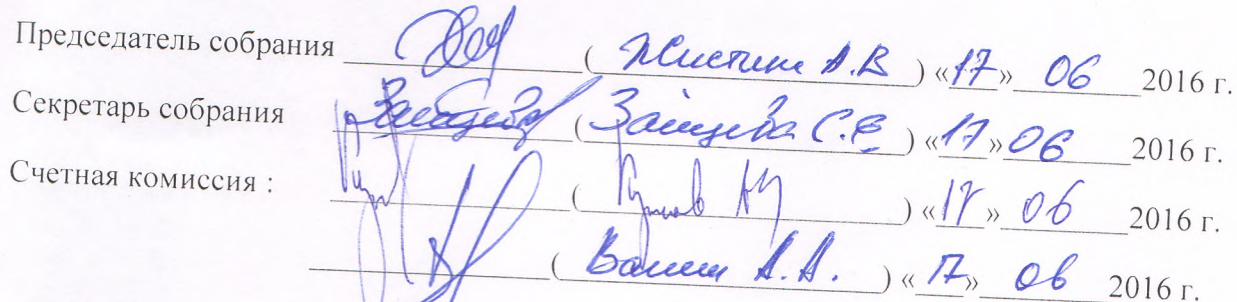 Председатель собрания ( Жистин А.В ) «17» 06 2016 г.
Секретарь собрания (Зайцева С.Е) «17» 06 2016 г.
Счетная комиссия : ( ) «17» 06 2016 г.
( А.А. ) «17» 06 2016 г.